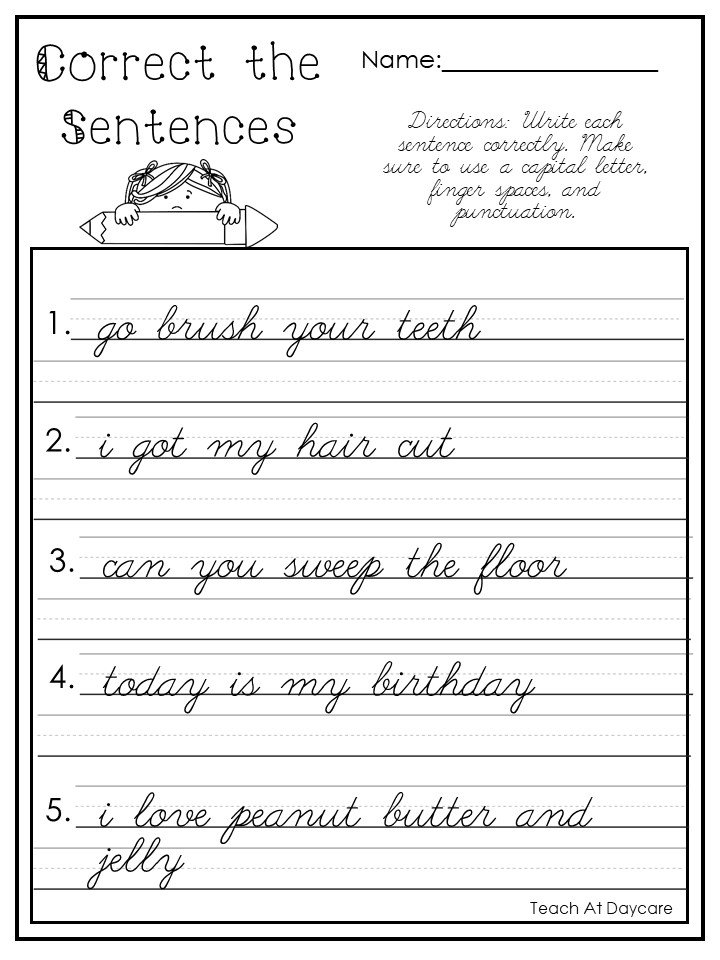 Correct the
Sentences
Name:
Directions: Write each
sentence correctly. Make
sure to use a capital letter,
finger spaces, and
punctuation.
1. go brush your teeth
2. i got my hair cut
3. can you sweep the floor
4. today is my birthday
5. i love peanut butter and
jelly
Teach At Daycare